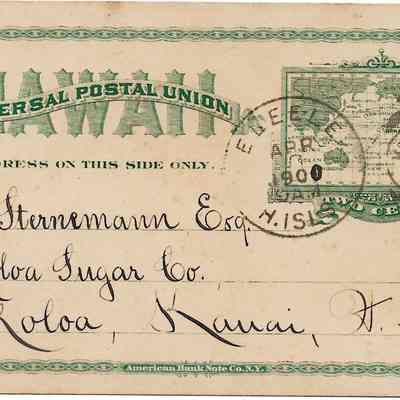 HAWAII
ERSAL POSTAL UNION
DRESS ON THIS SIDE ONLY.
ELEELE
APR
1900
H.ISLS
TWO CE
Sternemann Esq.
loa Sugar Co.
Koloa, Kauai, H.
American Bank Note Co. N.Y.